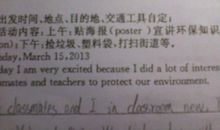 出发时间、地点、目的地、交通工具自定;
活动内容:上午:贴海报(poster)宣讲环保知识
on);下午:捡垃圾、塑料袋、打扫街道等。
day, March 15.2013
day I am very excited because I did a lot of interest
mates and teachers to protect our environment.
classmates and I in classroom